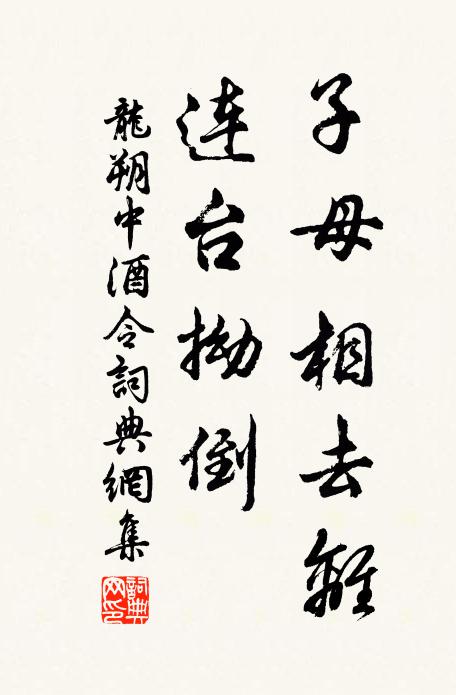 子母相去離
連台拗倒
龍朔中酒令詞典網集
詞典网印